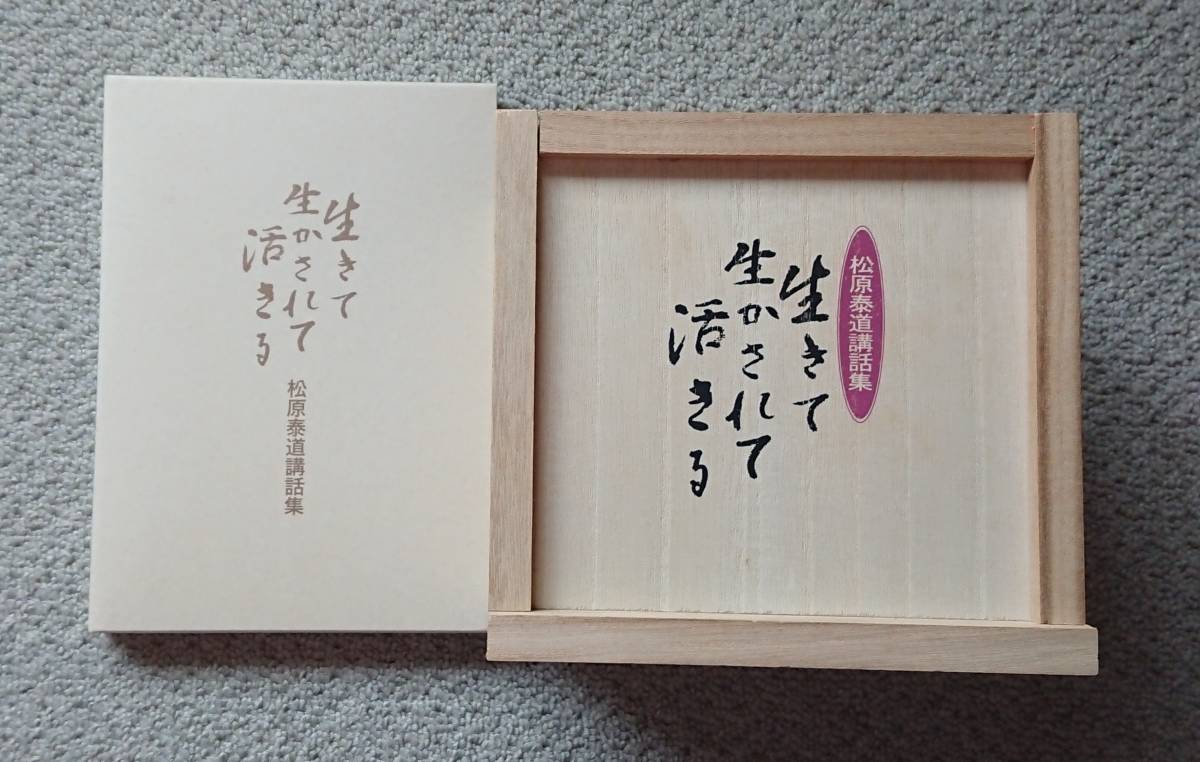 生きて
生かされて
活きる
松原泰道講話集
松原泰道講話集
生きて
生かされて
活きる